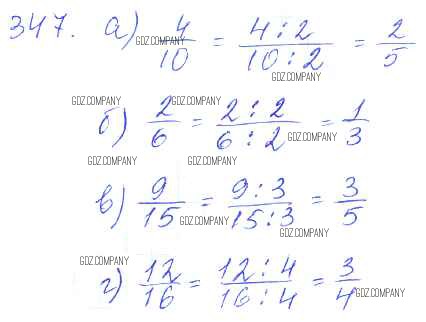 347. а) 4/10 = 4:2/10:2 = 2/5
б) 2/6 = 2:2/6:2 = 1/3
в) 9/15 = 9:3/15:3 = 3/5
г) 12/16 = 12:4/16:4 = 3/4
GDZ.COMPANY
GDZ.COMPANY
GDZ.COMPANY
GDZ.COMPANY
GDZ.COMPANY
GDZ.COMPANY
GDZ.COMPANY
GDZ.COMPANY
GDZ.COMPANY
GDZ.COMPANY
GDZ.COMPANY